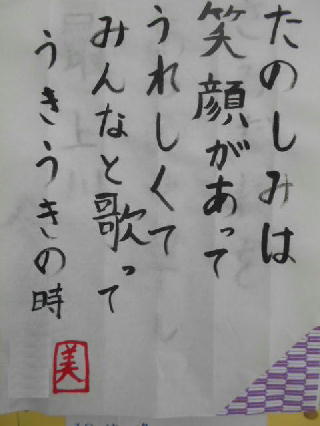 たのしみは
笑顔があって
うれしくて
みんなと歌って
うきうきの時
美